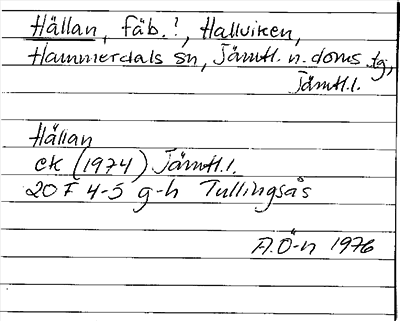 Hällan, fäb.!, Hallviken,
Hammerdals sn, Jämtl. n. doms.tg,
Jämtl.l.
Hällan
ek (1974) Jämtl.l.
20 F 4-5 g-h Tullingsås
A.Ö-n 1976